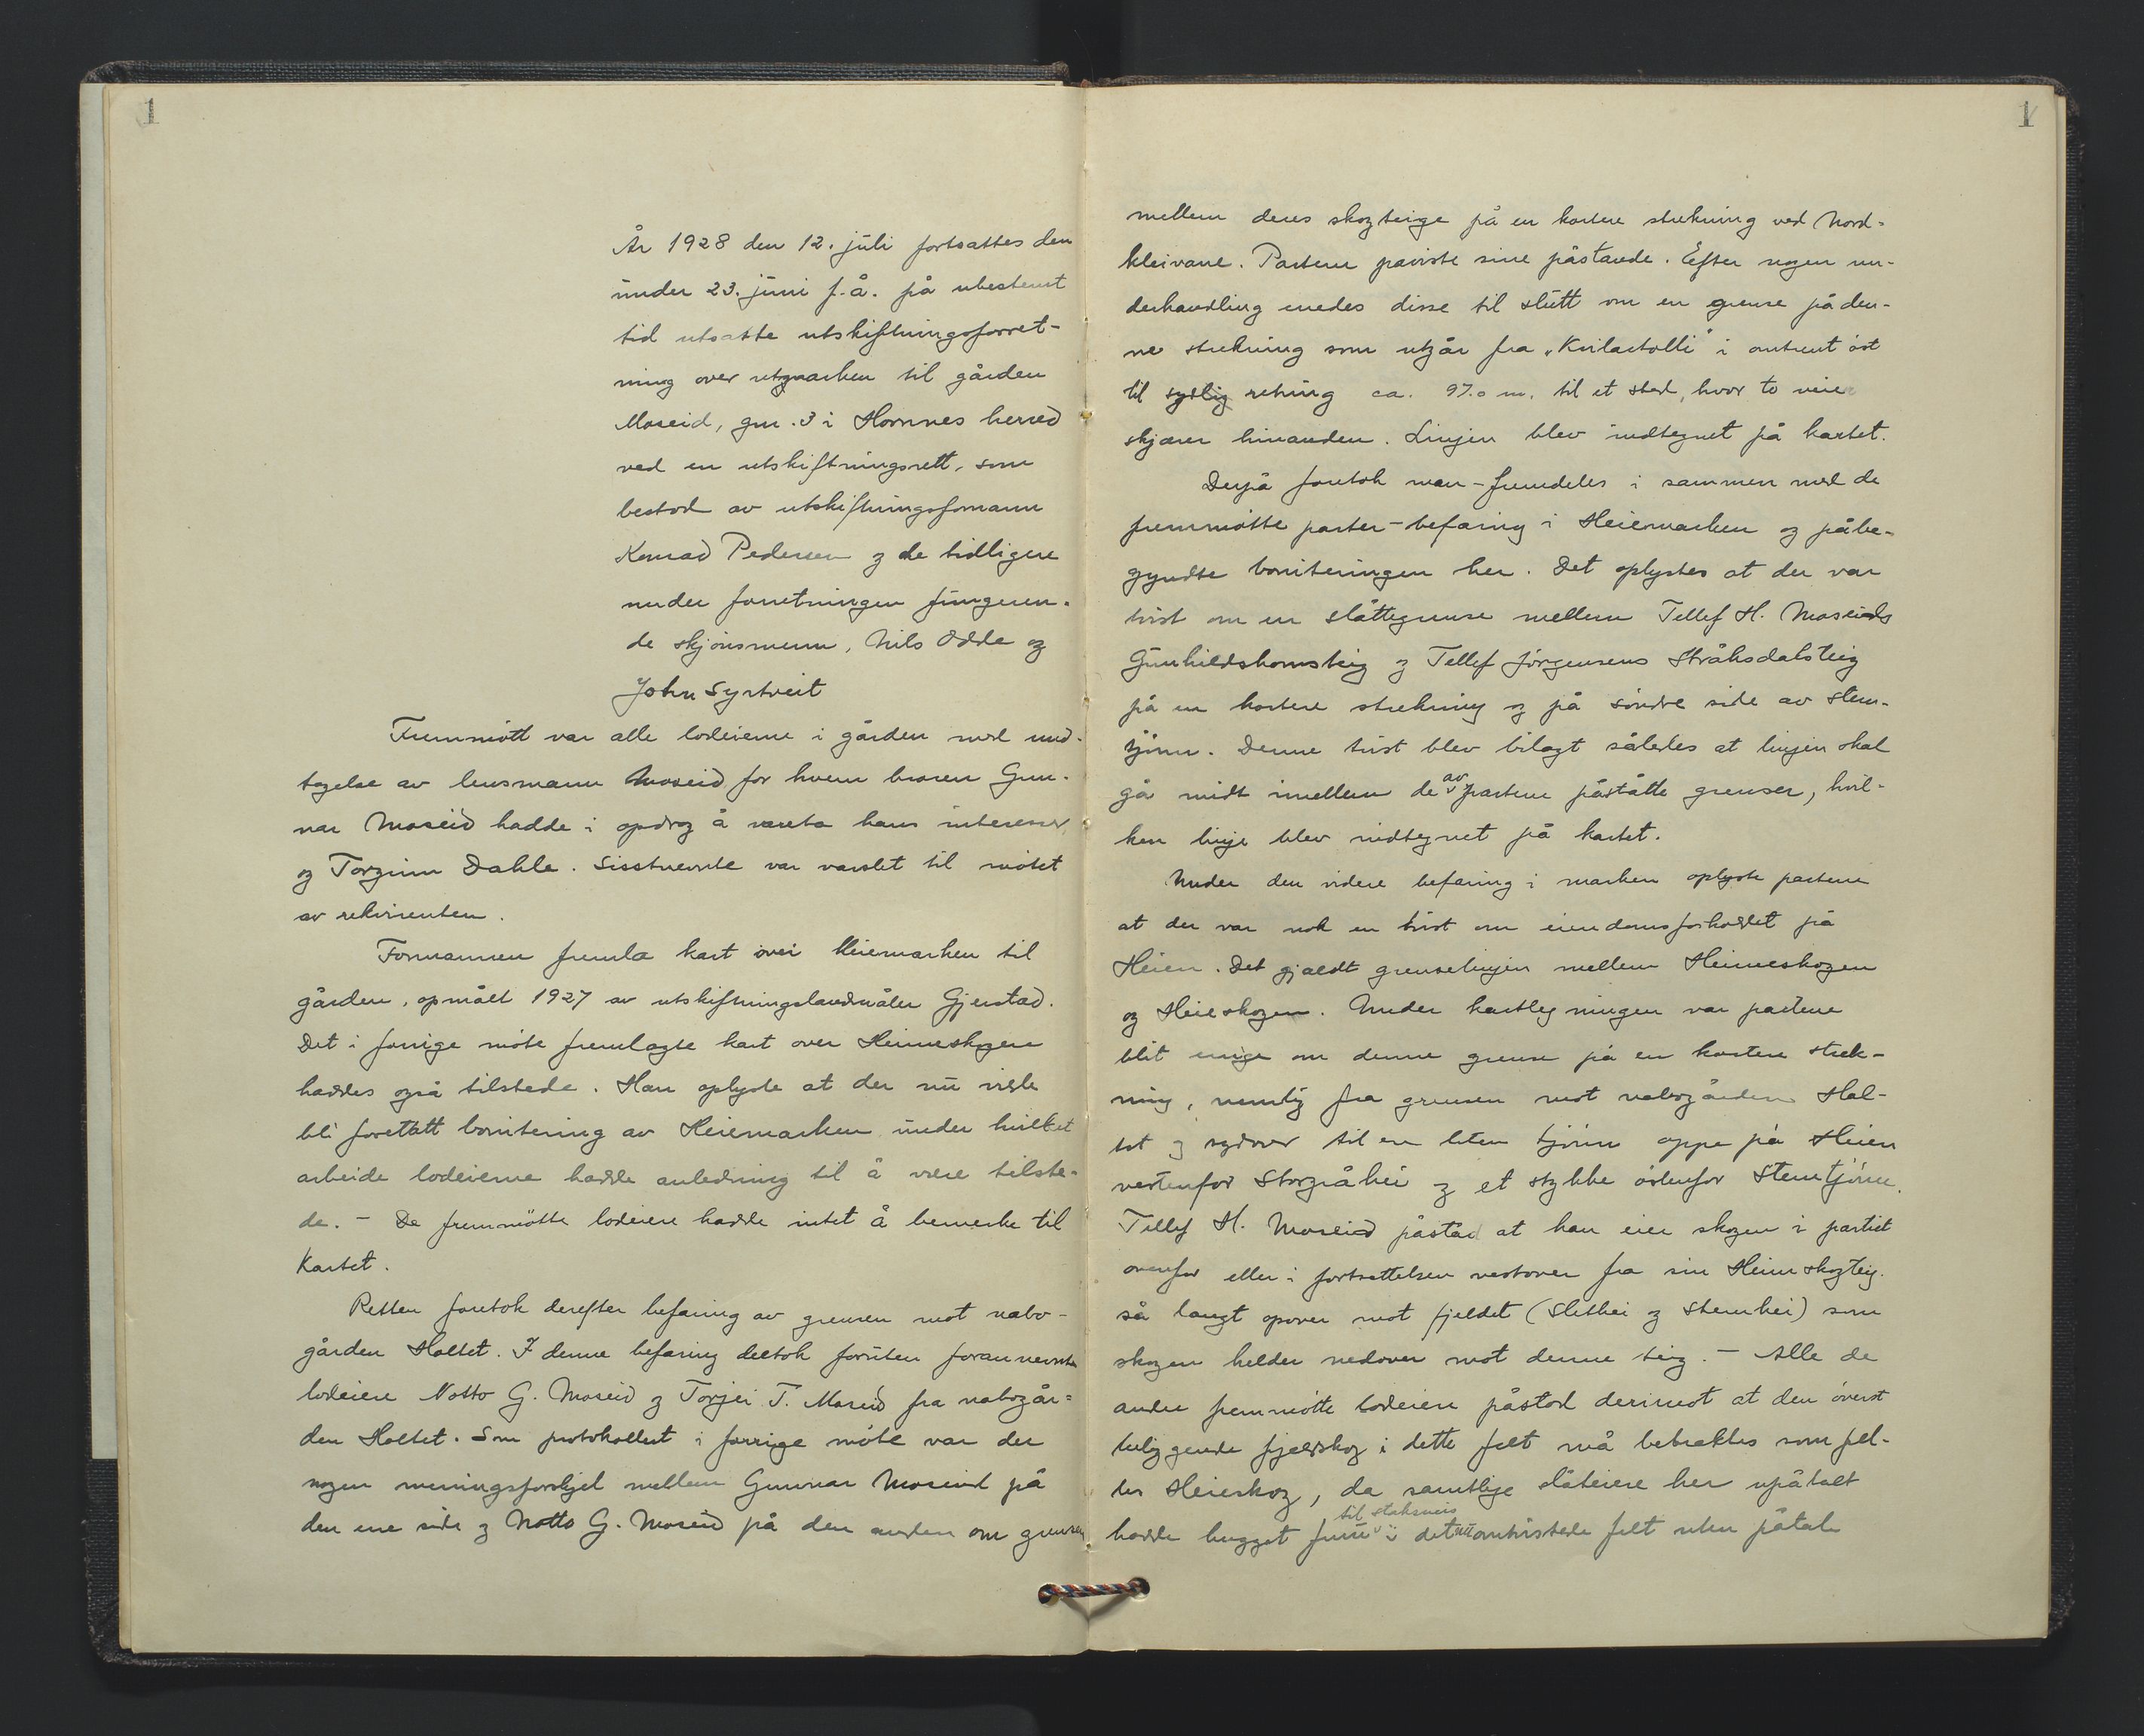 1
År 1928 den 12. juli fortsattes den
under 23. juni f.å. på ubestemt
tid utsatte utskiftningsforret-
ning over utmarken til gården
Moseid, gnr. 3 i Hornnes herred
ved en utskiftningsrett, som
bestod av utskiftningsformann
Konrad Pedersen og de tidligere
under forretningen fungeren-
de skjønsmenn, Nils Odde og
John Syrtveit
Fremmøtt var alle lodeierne i gården med und-
tagelse av lensmann Moseid for hvem broren Gun-
nar Moseid hadde i opdrag å vareta hans interesser
og Torginn Dahle. Sisstnevnte var varslet til møtet
av rekvirenten.
Formannen fremla kart over Heiemarken til
gården, opmålt 1927 av utskiftningslandmåler Gjerstad.
Det i forrige møte fremlagte kart over Heimeskogen
haddes også tilstede. Han oplyste at der nu vilde
bli foretatt bonitering av Heiemarken under hvilket
arbeide lodeierne hadde anledning til å være tilste-
de. - De fremmøtte lodeiere hadde intet å bemerke til
Kartet.
Retten foretok derefter befaring av grensen mot nabo-
gården Holtet. I denne befaring deltok foruten forannevnte
lodeiere Notto G. Moseid og Torjei T. Moseid fra nabogår-
den Holtet. Som protokollert i forrige møte var der
nogen meningsforskjel mellem Gunnar Moseid på
den ene side og Notto G. Moseid på den anden om grensen
1
mellem deres skogteige på en kortere strekning ved Nord-
kleivane. Partene påviste sine påstande. Efter nogen un-
derhandling enedes disse til slutt om en grense på den-
ne strekning som utgår fra "Kvilastolli" i omtrent øst
til sydlig retning ca. 97.0 m. til et sted, hvor to veier
skjærer hinanden. Linjen blev indtegnet på kartet.
Derpå foretok man - fremdeles i sammen med de
fremmøtte parter - befaring i Heiemarken og påbe-
gyndte boniteringen her. Det oplystes at der var
tvist om en slåttegrense mellem Tellef H. Moseids
Gunhildshomsteig og Tellef Jørgensens Stråksdalsteig
på en kortere strekning og på søndre side av Stem-
tjønn. Denne tvist blev bilagt således at linjen skal
gå midt imellem de av partene påståtte grenser, hvil-
ken linje blev indtegnet på kartet.
Under den videre befaring i marken oplyste partene
at der var nok en tvist om eiendomsforholdet på
Heien. Det gjaldt grenselinjen mellem Heimeskogen
og Heieskogen. Under kartlegningen var partene
blit enige om denne grense på en kortere strek-
ning, nemlig fra grensen mot nabogården Hol-
tet og sydover til en liten tjønn oppe på Heien
vestenfor Storråhei og et stykke østenfor Stemtjønn.
Tellef H. Moseid påstod at han eier skogen i partiet
ovenfor eller i fortsettelsen vestover fra sin Heimskogteig.
så langt opover mot fjeldet (Slethei og Stemhei) som
skogen helder nedover mot denne teig. - Alle de
andre fremmøtte lodeiere påstod derimot at den øverst
beliggende fjeldskog i dette felt må betraktes som fel-
les Heieskog, da samtlige slåteiere her upåtalt
hadde hugget furu til staksneis i det nu omtvistede felt uten påtale